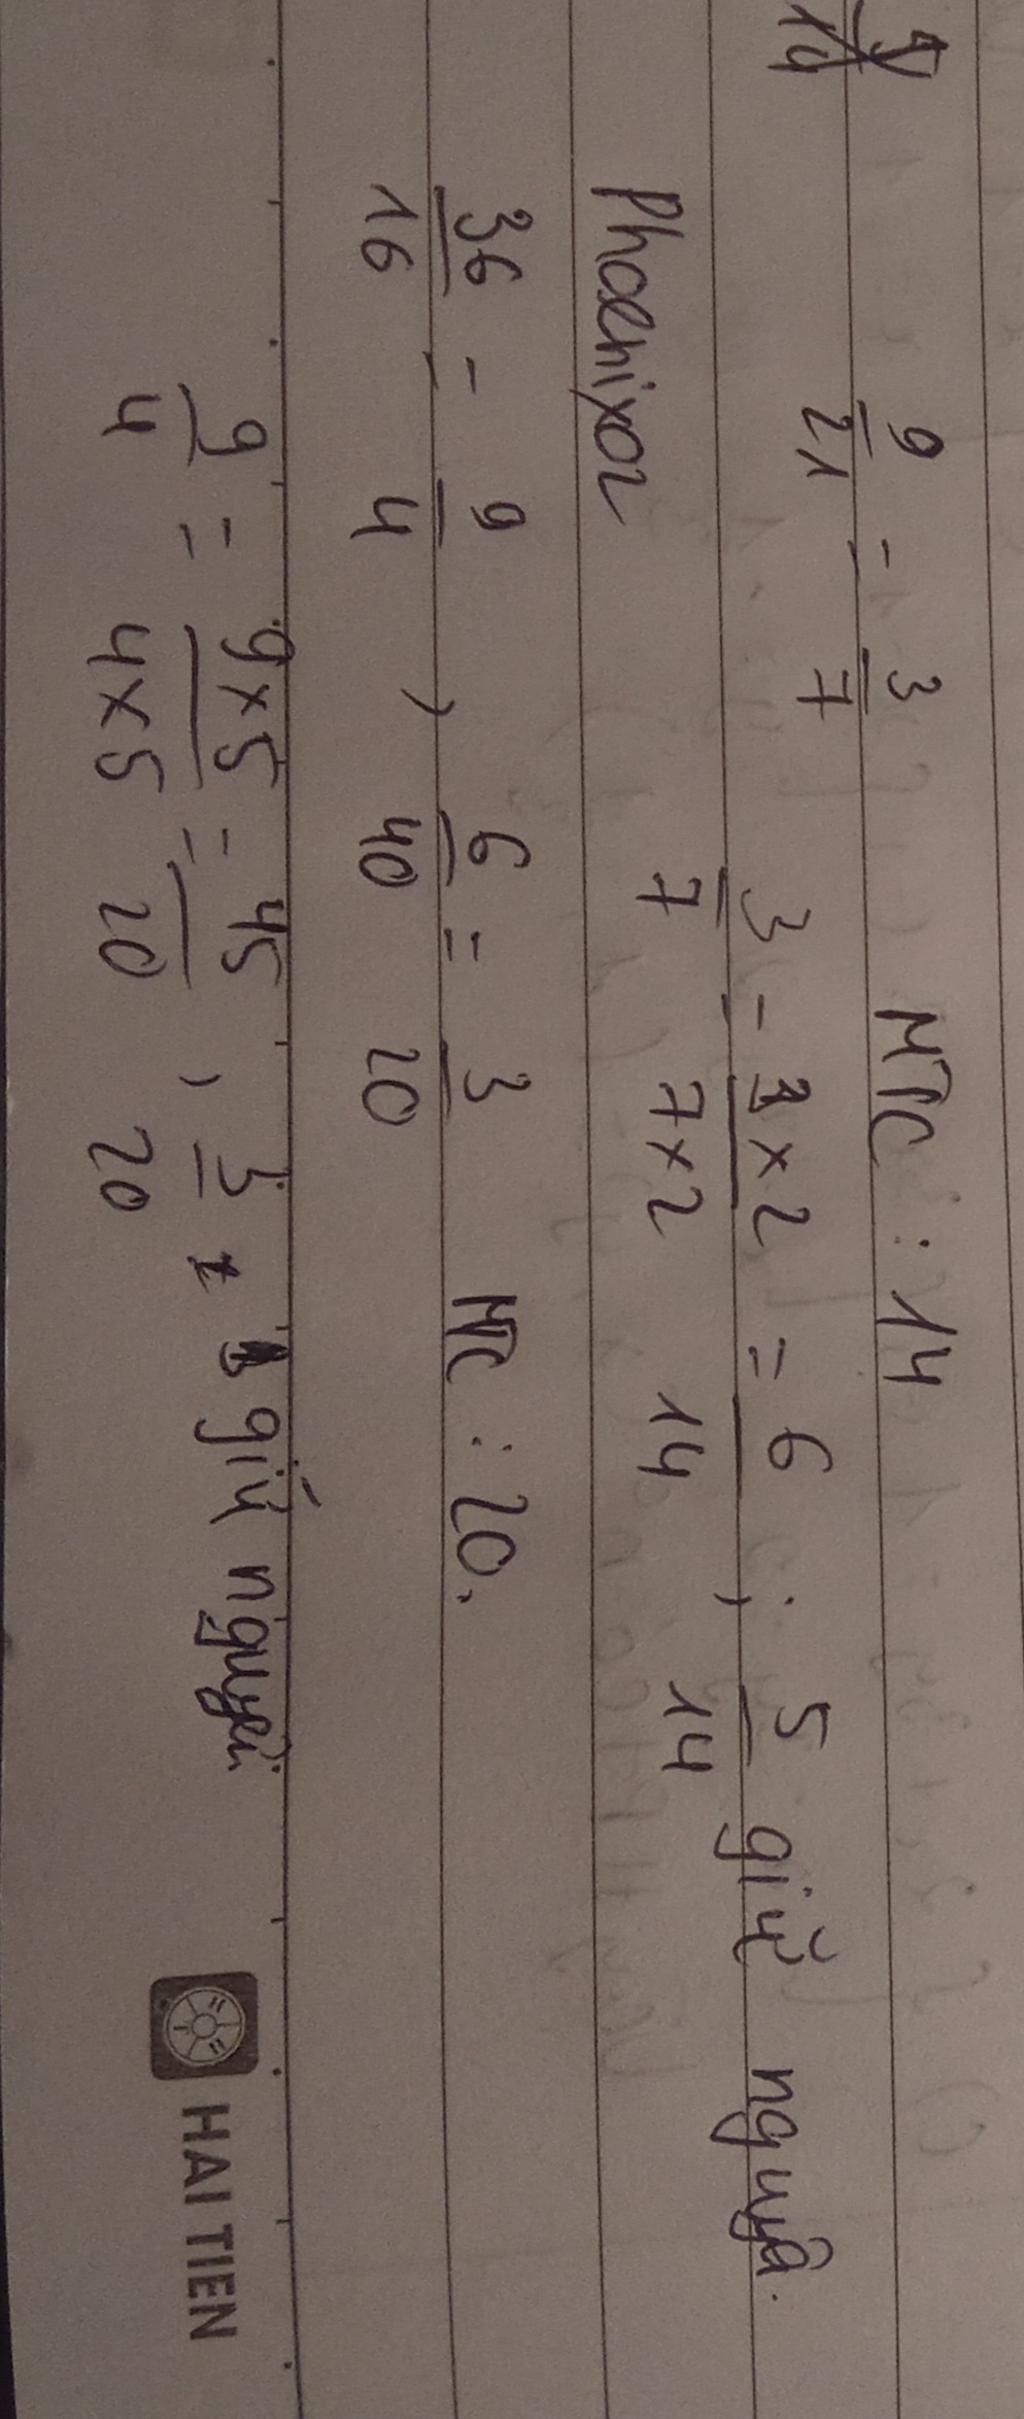 9/21 = 3/7 MTC : 14
3/7 = 3×2/7×2 = 6/14 , 5/14 giữ nguyê.
Phoenixoz
36/16 = 9/4 , 6/40 = 3/20 MTC : 20.
9/4 = 9×5/4×5 = 45/20 , 3/20 giứ nguyên
HAI TIEN